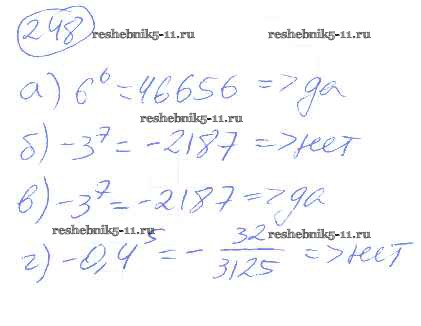 248 reshebnik5-11.ru reshebnik5-11.ru
а) 6⁶ = 46656 => да
reshebnik5-11.ru
б) -3⁷ = -2187 => нет
в) -3⁷ = -2187 => да
reshebnik5-11.ru reshebnik5-11.ru
г) -0,4⁵ = - 32/3125 => нет